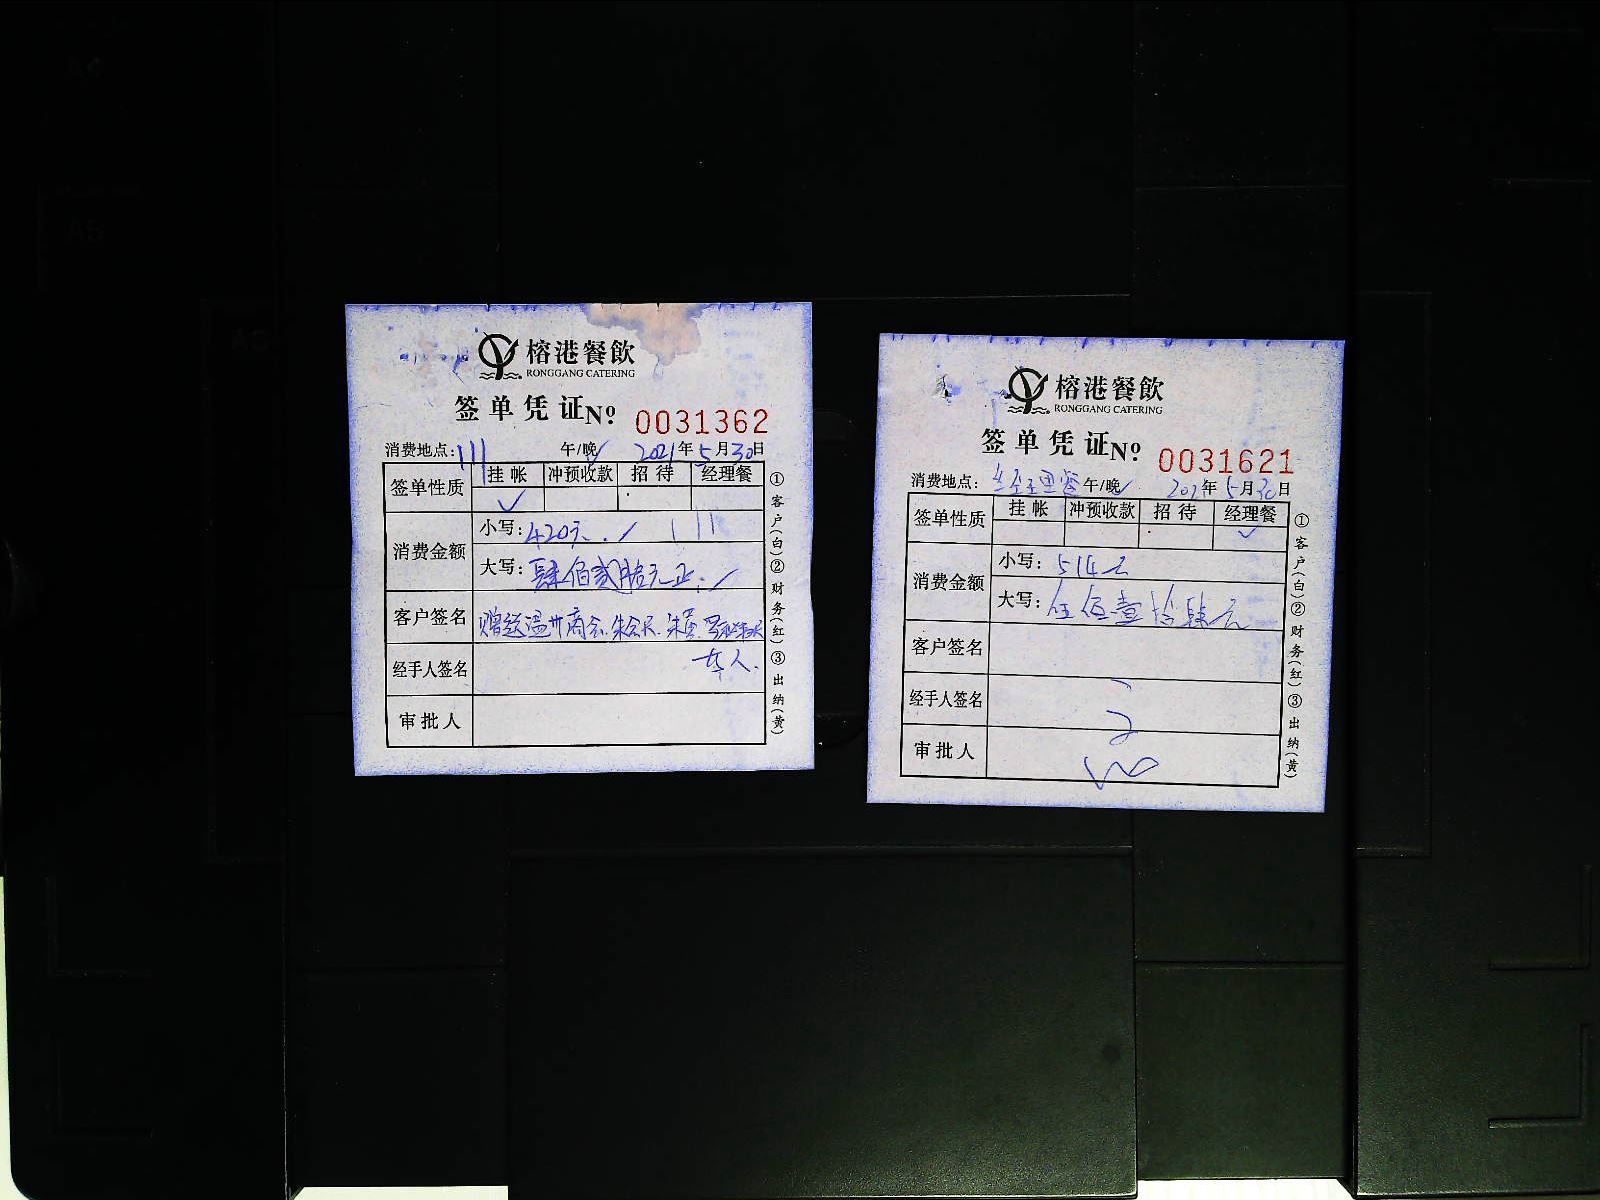 榕港餐飲
RONGGANG CATERING
签单凭证 Nº 0031362
消费地点: 111 午/晚✓ 2021年5月30日
签单性质 挂帐 冲预收款 招待 经理餐
✓
消费金额 小写: 420元
大写: 肆佰贰拾元正
客户签名 赠送温州商会.朱会长.朱董.
经手人签名
审批人
①客户(白)②财务(红)③出纳(黄)
榕港餐飲
RONGGANG CATERING
签单凭证 Nº 0031621
消费地点: 经理餐 午/晚✓ 2021年5月30日
签单性质 挂帐 冲预收款 招待 经理餐
✓
消费金额 小写: 514元
大写: 伍佰壹拾肆元
客户签名
经手人签名
审批人
①客户(白)②财务(红)③出纳(黄)